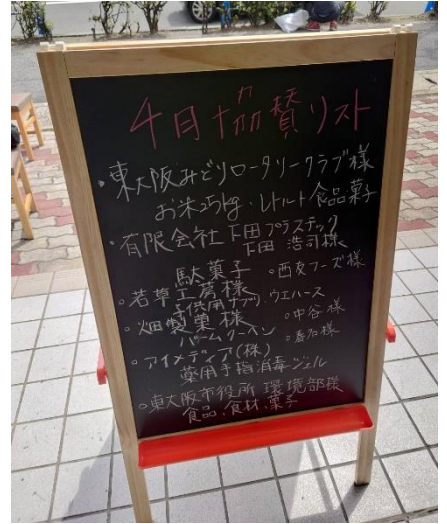 4月協賛リスト
・東大阪みどりロータリークラブ様
お米25kg・レトルト食品菓子
・有限会社下田プラスチック
下田 浩司様
駄菓子
○西友フーズ様
○若草工房様
子供用サプリ.ウエハース
○畑製菓様
○中谷様
バームクーヘン
○アイメディア(株)
薬用手指消毒ジェル
○東大阪市役所 環境部様
食品.食材.菓子